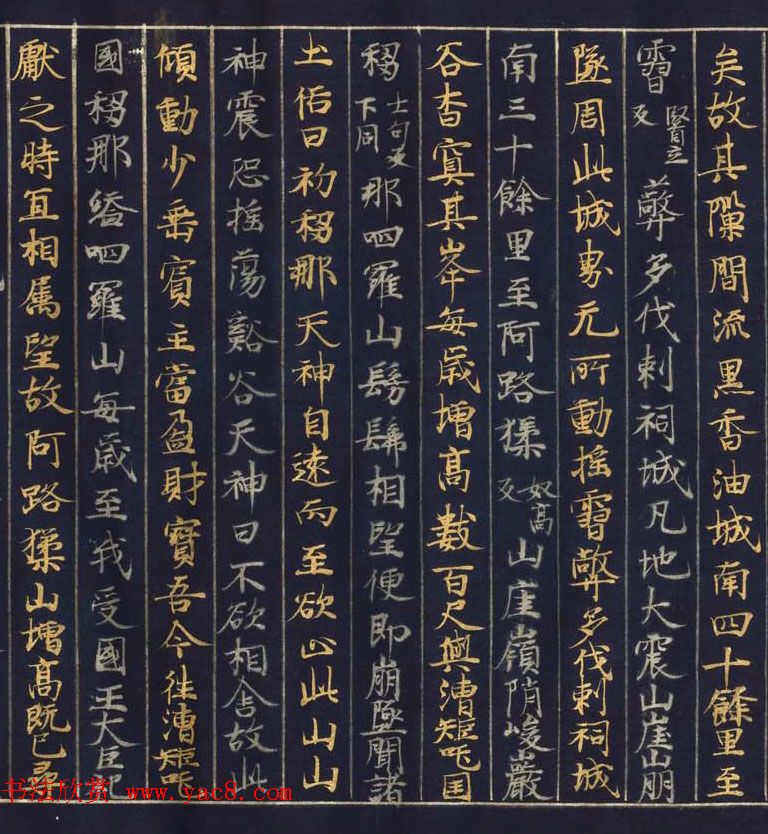 矣故其隟間流黑香油城南四十餘里至
霫賢立反蔽多伐剌祠城凡地大震山崖崩
墜周此城界无所動搖霫蔽多伐剌祠城
南三十餘里至阿路猱奴高反山崖嶺陗峻巖
谷杳冥其峯每歲增高數百尺與漕矩吒国
䅳士句反下同那呬羅山髣髴相望便即崩墜聞諸
土俗曰初䅳那天神自遠而至欲止此山山
神震恐搖蕩谿谷天神曰不欲相舍故此
傾動少垂賓主當盈財寶吾今往漕矩吒
國䅳那呬羅山每歲至我受國王大臣祀
獻之時宜相属望故阿路猱山增高既已尋
书法欣赏 www.yac8.com